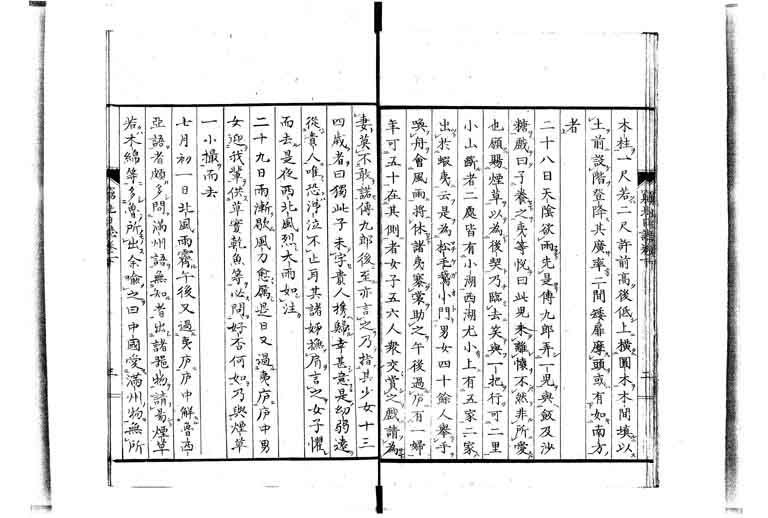 木柱一尺若二尺許前高後低上橫圓木木間填以
土前設階登降其廣率一間矮扉摩頭或有如南方
者
二十八日天陰欲雨先是傳九郎弄一兒與飯及沙
糖戲曰子養之夷等悅曰此兒未離懷不然非所愛
也願賜煙草以為後契乃臨去矣與一把行可二里
小山斷者二處皆有小湖西湖尤小上有五家二家
出於蝦夷云是為松毛窩小門男女四十餘人舉手
喚舟會風雨將休諸夷褰裳助之午後過廬有一婦
年可五十在其側者女子五六人衆交賞之戲請為
妻莫不敢諾傳九郎後至亦言之乃指其少女十三
四歲者曰獨此子未字貴人携歸幸甚意是幼弱遠
從貴人唯恐涕泣不止耳其諸姊撫肩言之女子懼
而去是夜西北風烈大雨如注
二十九日雨漸歇風力愈厲過日又過夷廬廬中男
女迎我輩供草實乾魚等必問好否何如乃與煙草
一小撮而去
七月初一日北風雨霽午後又過夷廬廬中解魯西
亞語者頗多問滿州語無知者出諸貂物請易煙草
若木綿等多魯所出余喻之曰中國愛滿州物無所